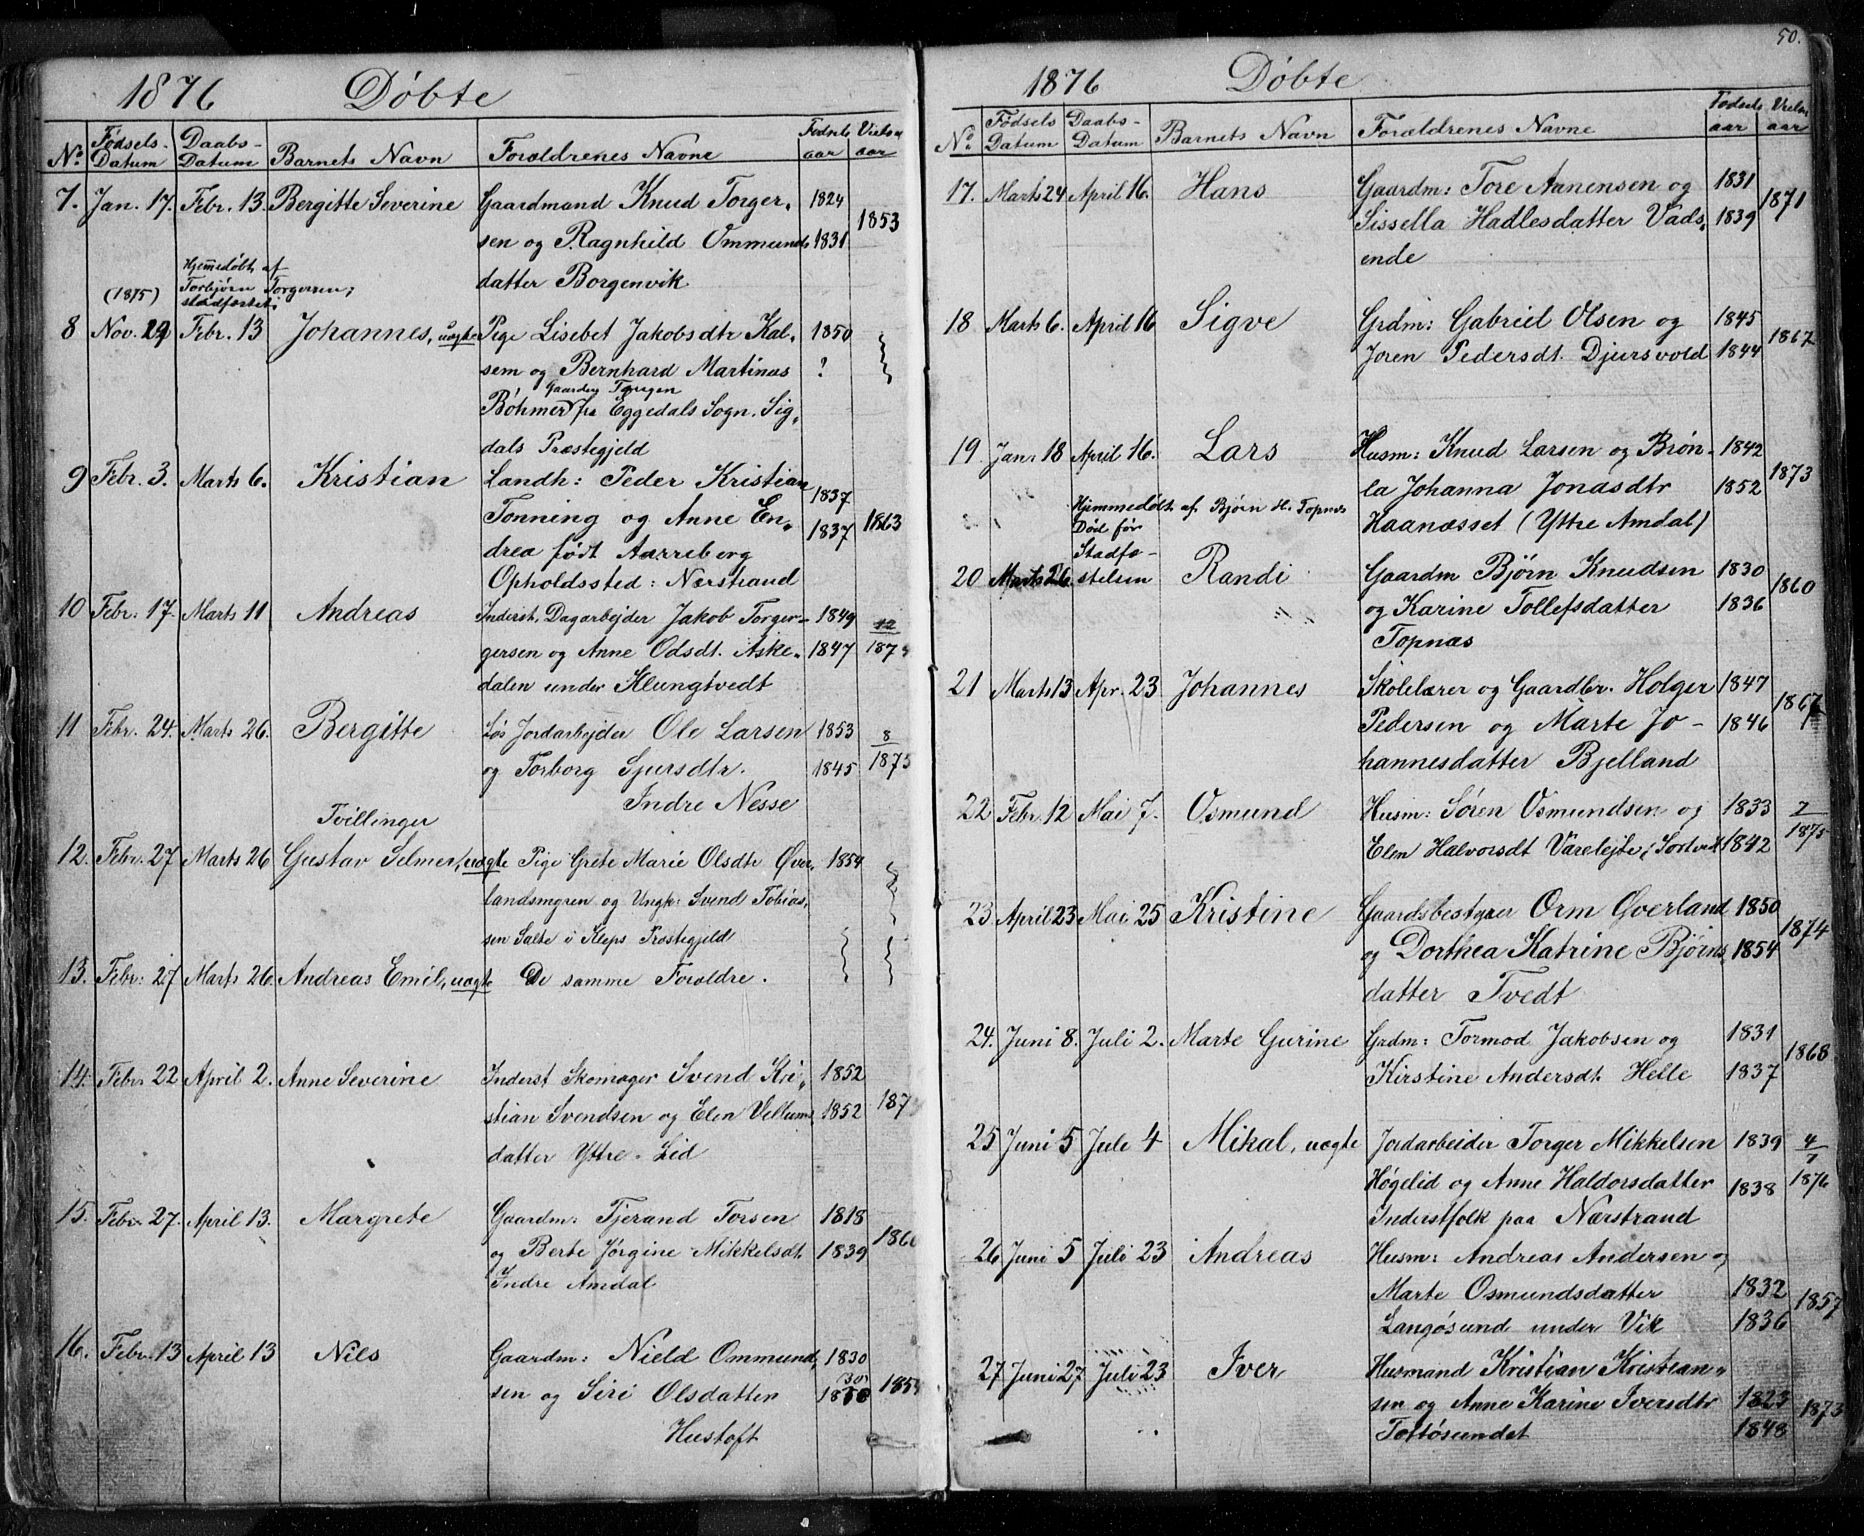 1876 Döbte
No. Födsels-Datum Daabs-Datum Barnets Navn Forældrenes Navne Fødsels aar Vielses aar
7. Jan. 17. Febr. 13. Bergitte Severine Gaardmand Knud Torger- 1824
sen og Ragnhild Ommunds- 1831 1853
datter Borgenvik
(1875) Hjemmedøbt af Torbjørn Torgersen; stadfæstet;
8 Nov. 29 Febr. 13 Johannes, uægte Pige Lisebet Jakobsdtr Kal- 1850
sem og Bernhard Martinus ?
Gaarden
Böhmer fra Eggedals Sogn. Sig-
dals Præstegjeld
9 Febr. 3. Marts 6. Kristian Landh: Peder Kristian 1837
Tonning og Anne En- 1837 1863
drea født Aarreberg
Opholdssted: Nærstrand
10 Febr. 17. Marts 11 Andreas Inderst, Dagarbejder Jakob Torger- 1849
gersen og Anne Odsdt. Aske- 1847
dalen under Klungtvedt
11 Febr. 24. Marts 26. Bergitte Løs Jordarbejder Ole Larsen 1853
og Torborg Sjursdtr. 1845 8/1875
Indre Nesse
Tvillinger
12. Febr. 27 Marts 26 Gustav Selmer, uægte Pige Grete Marie Olsdtr Øver- 1854
landsmyren og Ungk: Svend Tobias-
sen Salte i Kleps Præstegjeld
13. Febr. 27 Marts 26. Andreas Emil, uægte De samme Forældre.
14. Febr 22 April 2. Anne Severine Inderst Skomager Svend Kri- 1852
stian Svendsen og Elen Vellums- 1852
datter Yttre-Lid
15. Febr 27. April 13. Margrete Gaardm: Tjerand Torsen 1818
og Berte Jørgine Mikkelsdt. 1839
Indre Amdal
16. Febr. 13 April 13 Nils Gaardm: Nield Ommund- 1830
sen og Siri Olsdatter
Hustoft
50.
1876 Döbte
No. Födsels Datum Daabs-Datum Barnets Navn Forældrenes Navne Fødsels aar Vielses aar
17. Marts 24 April 16. Hans Gaardm: Tore Aanensen og 1831
Sissella Hadlesdatter Vads- 1839 1871
ende
18 Marts 6. April 16 Sigve Grdm: Gabriel Olsen og 1845
Joren Pedersdt. Djursvold 1844 1867
19. Jan. 18 April 16. Lars Husm: Knud Larsen og Brøn- 1842
la Johanna Jonasdtr 1852 1873
Haanæsset (Yttre Amdal)
Hjemmedøbt af Bjørn K. Topnæs
Død før
Stadfæ-
20 Marts 26. stelsen Randi Gaardm Bjørn Knudsen 1830
og Karine Tollefsdatter 1836 1860
Topnæs
21 Marts 13 Apr. 23 Johannes Skolelærer og Gaardbr. Holger 1847
Pedersen og Marte Jo- 1846 1867
hannesdatter Bjelland
22 Febr. 12 Mai 7. Osmund Husm: Søren Osmundsen og 1833
Elen Halvorsdt Vareleite, Sortvedt 1842 7/1875
23. April 23 Mai 25 Kristine Gaardsbestyrer Orm Qverland 1850
og Dorthea Katrine Bjørns- 1854 1874
datter Tvedt
24. Juni 8. Juli 2. Marte Gurine Grdm: Tormod Jakobsen og 1831
Kirstine Andersdt. Helle 1837 1868
25 Juni 5 Juli 4 Mikal, uægte Jordarbeider Torger Mikkelsen 1839 4/7
Høgelid og Anne Haldorsdatter 1838 1876
Inderstfolk paa Nærstrand
26 Juni 5 Juli 23 Andreas Husm: Andreas Andersen og
Marte Osmundsdatter 1832
Langøsund under Vik 1836 1857
27 Juni 27 Juli 23 Iver Husmand Kristian Kristian-
sen og Anne Karine Iversdtr 1823
Toftøsundet 1848 1873